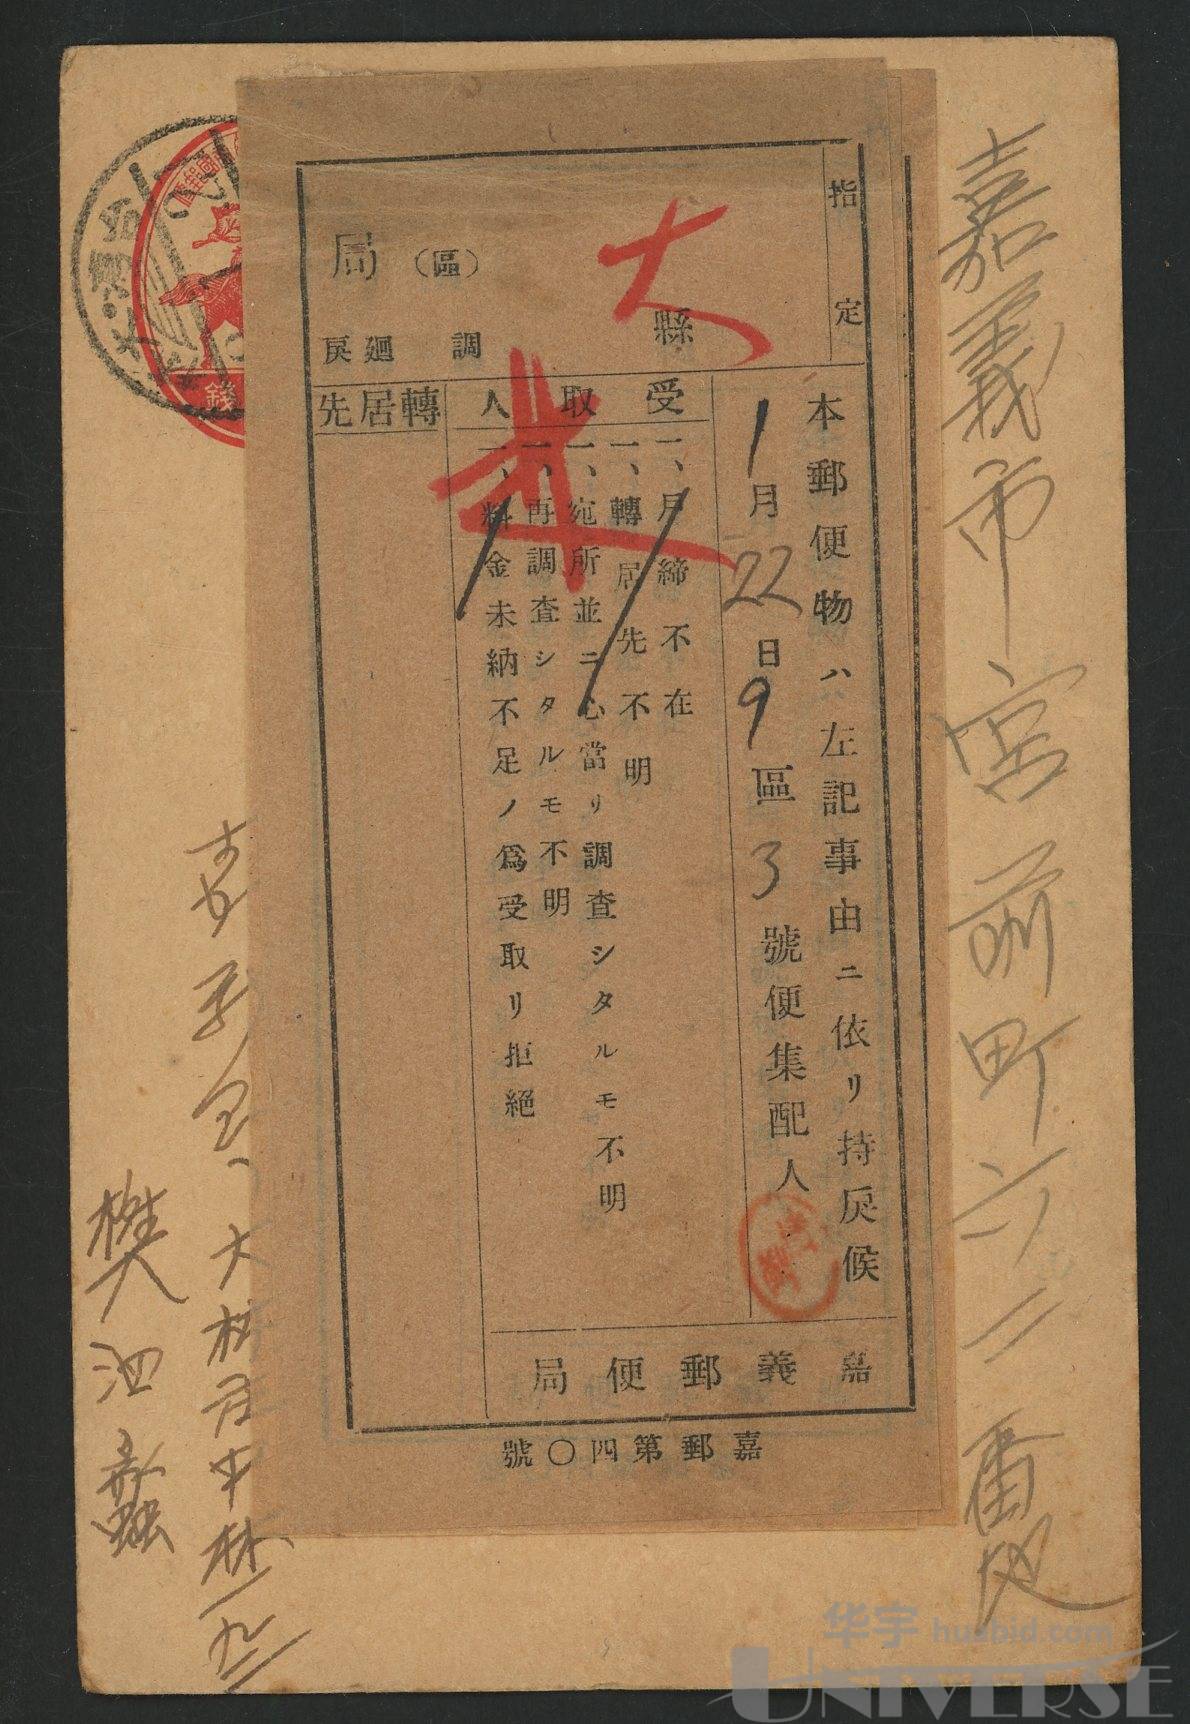 嘉義市宮前町六二番地
指定
大
縣
局（區）
調 廻戻
本郵便物ハ左記事由ニ依リ持戻候
1月22日9區3號便集配人
受取人
一、戸締不在
一、轉居先不明
一、宛所並ニ心當リ調査シタルモ不明
一、再調査シタルモ不明
一、料金未納不足ノ爲受取リ拒絕
轉居先
嘉義郵便局
嘉郵第四〇號
錢
台灣·大林
大林庄中林一九二
华宇 huabid.com
UNIVERSE